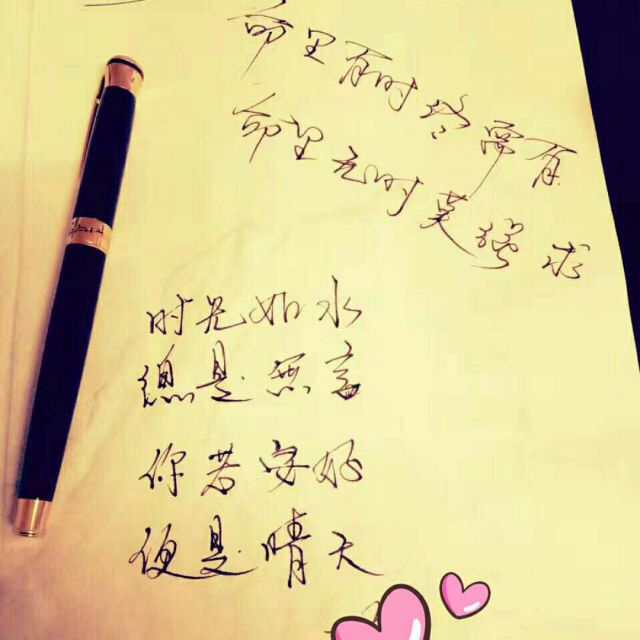 命里有时终需有
命里无时莫强求
时光如水
總是無言
你若安好
便是晴天